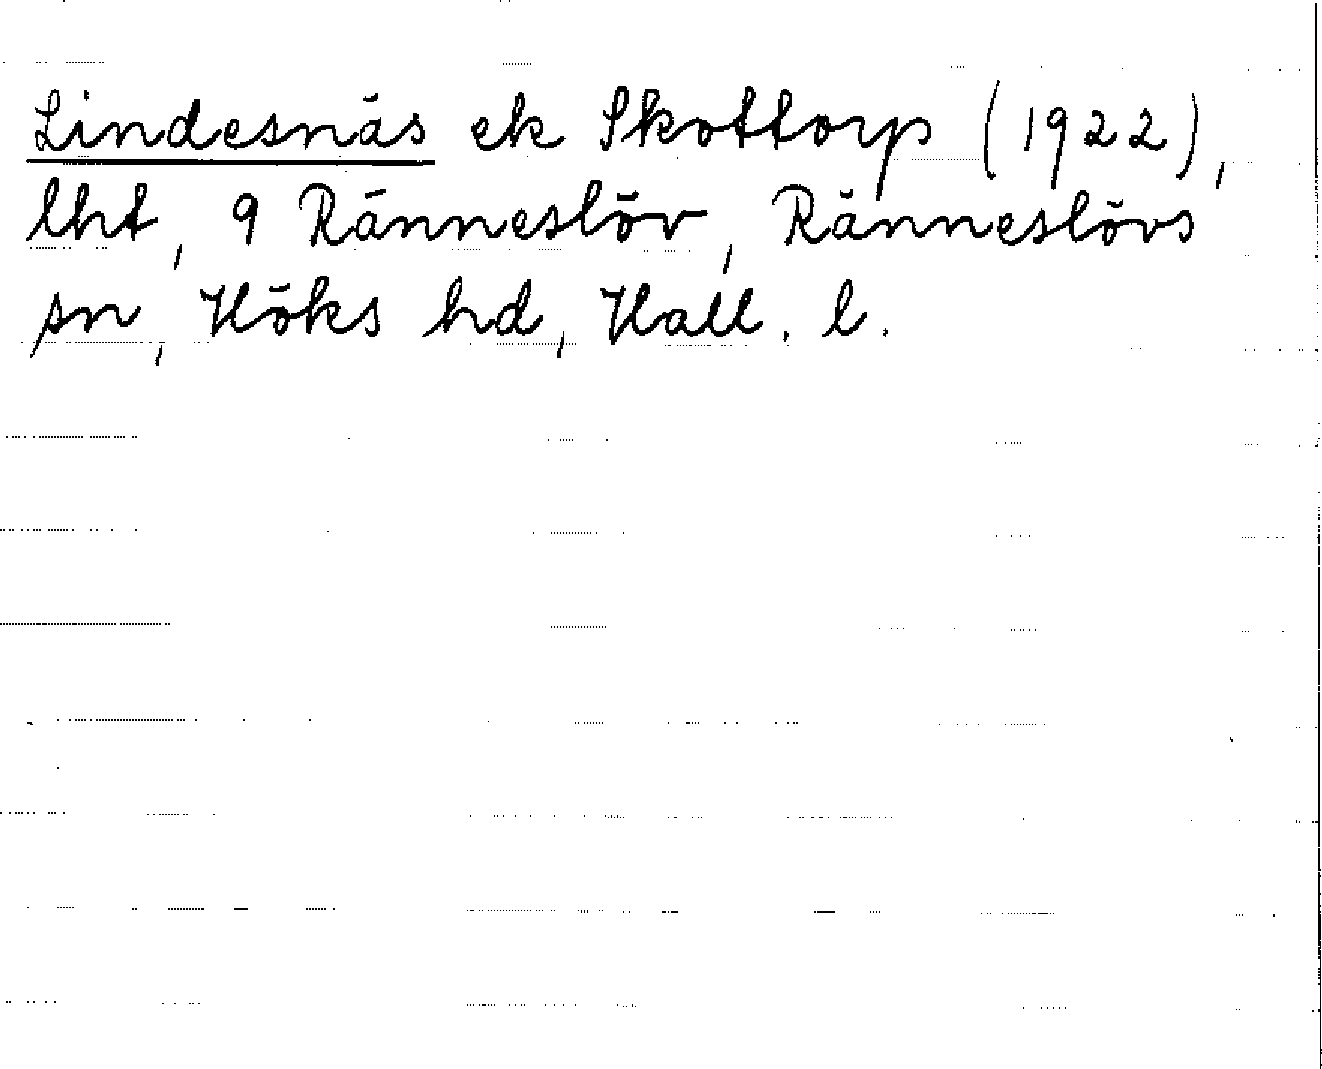 Lindesnäs ek Skottorp (1922),
lht, 9 Ränneslöv, Ränneslövs
sn, Höks hd, Hall. l.